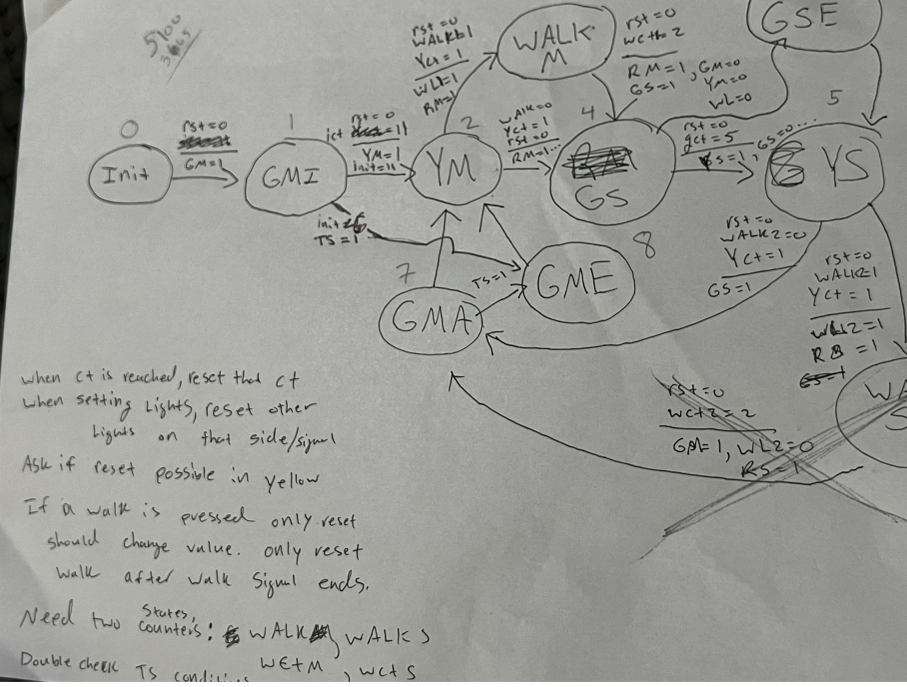 5100
3665
GSE
rst=0
WALK=1
Yct=1
WL=1
RM=1
WALK
M
rst=0
wct=2
RM=1, GM=0
GS=1 YM=0
WL=0
0
rst=0
GM=1
Init
1
GMI
ict
rst=0
=11
YM=1
init=11
2
YM
WALK=0
Yct=1
rst=0
RM=1...
4
GS
rst=0
gct=5
S=1, GS=0...
5
YS
init
TS=1
7
GMA
TS=1
GME
8
rst=0
WALK2=0
Yct=1
GS=1
rst=0
WALK2=1
Yct=1
WL2=1
RS=1
GS=1
WA
S
rst=0
wct2=2
GM=1, WL2=0
RS=1
When ct is reached, reset that ct
When setting Lights, reset other
Lights on that side/signal
Ask if reset possible in yellow
If a walk is pressed only reset
should change value. only reset
walk after walk signal ends.
Need two states,
counters: WALKM, WALKS
WCtM, wctS
Double check TS condition